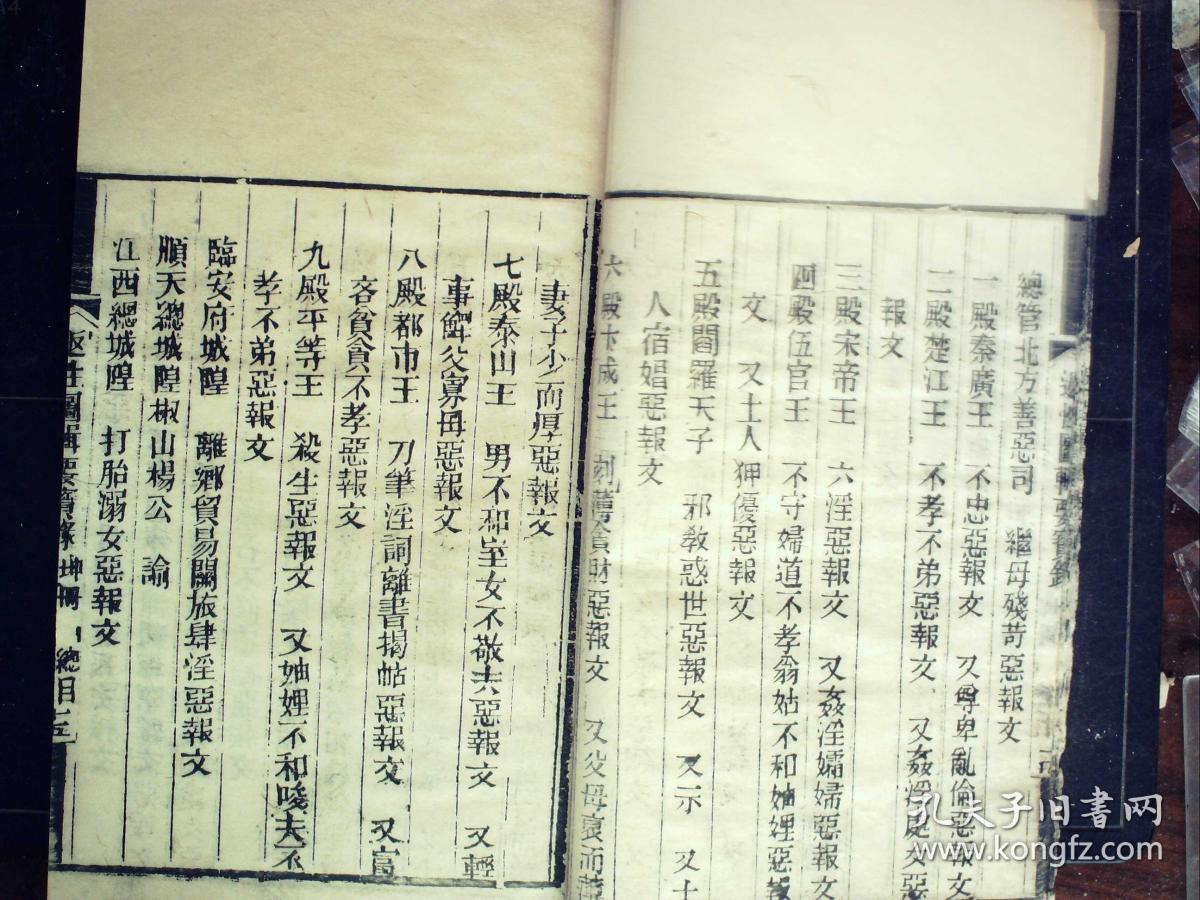 總管北方善惡司　繼母殘苛惡報文
一殿秦廣王　不忠惡報文　又尊卑亂倫惡報文
二殿楚江王　不孝不弟惡報文　又姦淫庭文惡
報文
三殿宋帝王　六淫惡報文　又姦淫孀婦惡報文
四殿伍官王　不守婦道不孝翁姑不和妯娌惡報
文　又士人狎優惡報文
五殿閻羅天子　邪教惑世惡報文　又示　又士
人宿娼惡報文
六殿卞成王　刻薄貪財惡報文　又父母衰而薄
妻子少而厚惡報文
七殿泰山王　男不和室女不敬夫惡報文　又輕
事鰥父寡母惡報文
八殿都市王　刀筆淫詞離書揭帖惡報文　又富
吝貧貪不孝惡報文
九殿平等王　殺生惡報文　又妯娌不和唆夫不
孝不弟惡報文
臨安府城隍　離鄉貿易關旅肆淫惡報文
順天總城隍椒山楊公　諭
江西總城隍　打胎溺女惡報文
坤冊　總目　五
孔夫子旧书网
www.kongfz.com